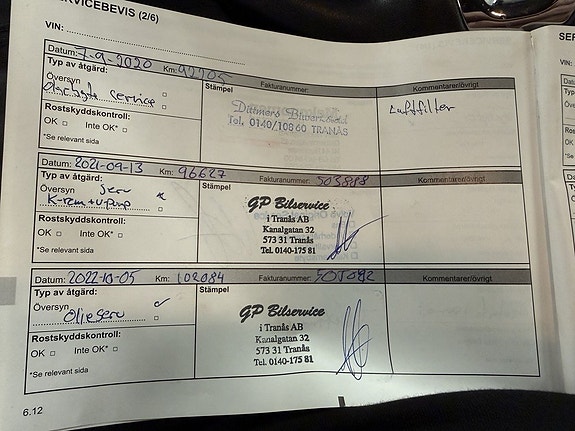 SERVICEBEVIS (2/6)
VIN:
Datum: 7-9-2020 Km: 92205 Fakturanummer: Kommentarer/övrigt
Typ av åtgärd: Stämpel
Översyn Luftfilter
Oljebyte service
Dittmers Bilverkstad
Tel. 0140/10860 TRANÅS
Rostskyddskontroll:
OK Inte OK*
*Se relevant sida
Datum: 2021-09-13 Km: 96627 Fakturanummer: Kommentarer/övrigt
Typ av åtgärd: Stämpel
Översyn serv
K-rem+v-pump
GP Bilservice
i Tranås AB
Kanalgatan 32
573 31 Tranås
Tel. 0140-175 81
Rostskyddskontroll:
OK Inte OK*
*Se relevant sida
Datum: 2022-10-05 Km: 102084 Fakturanummer: Kommentarer/övrigt
Typ av åtgärd: Stämpel
Översyn
Oljeserv
GP Bilservice
i Tranås AB
Kanalgatan 32
573 31 Tranås
Tel. 0140-175 81
Rostskyddskontroll:
OK Inte OK*
*Se relevant sida
6.12